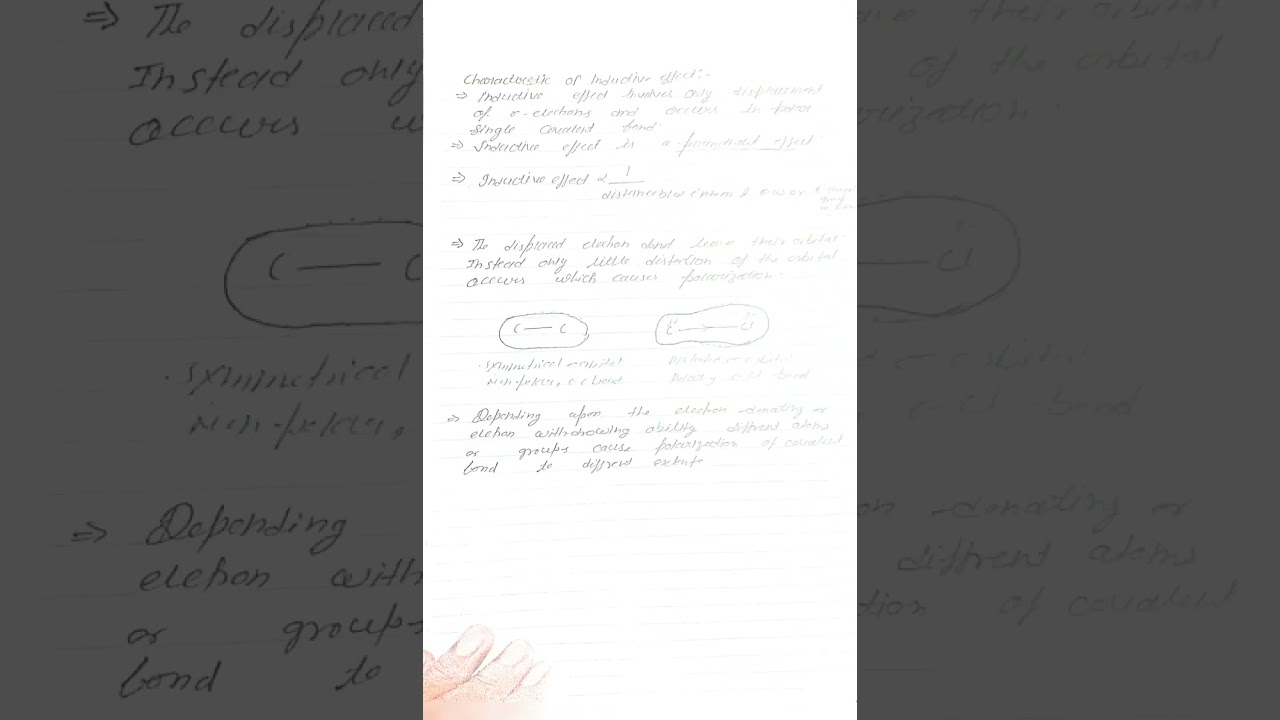 Characterstic of Inductive effect:-
⇒ Inductive effect Involves only displacement
of σ-elections and occurs in polar
single covalent bond.
⇒ Inductive effect is a permanent effect.
⇒ Inductive effect ∝ 1
distance b/w
⇒ The displaced election donot leave their orbital.
Instead only little distortion of the orbital
occurs which causes polarization.
C — C
C → Cl
Symmetrical orbital
Non-polar, C-C bond
Polar, C-Cl bond
⇒ Depending upon the election donating or
election withdrowing ability diffrent atoms
or groups cause polarization of covalent
bond to diffrent extents